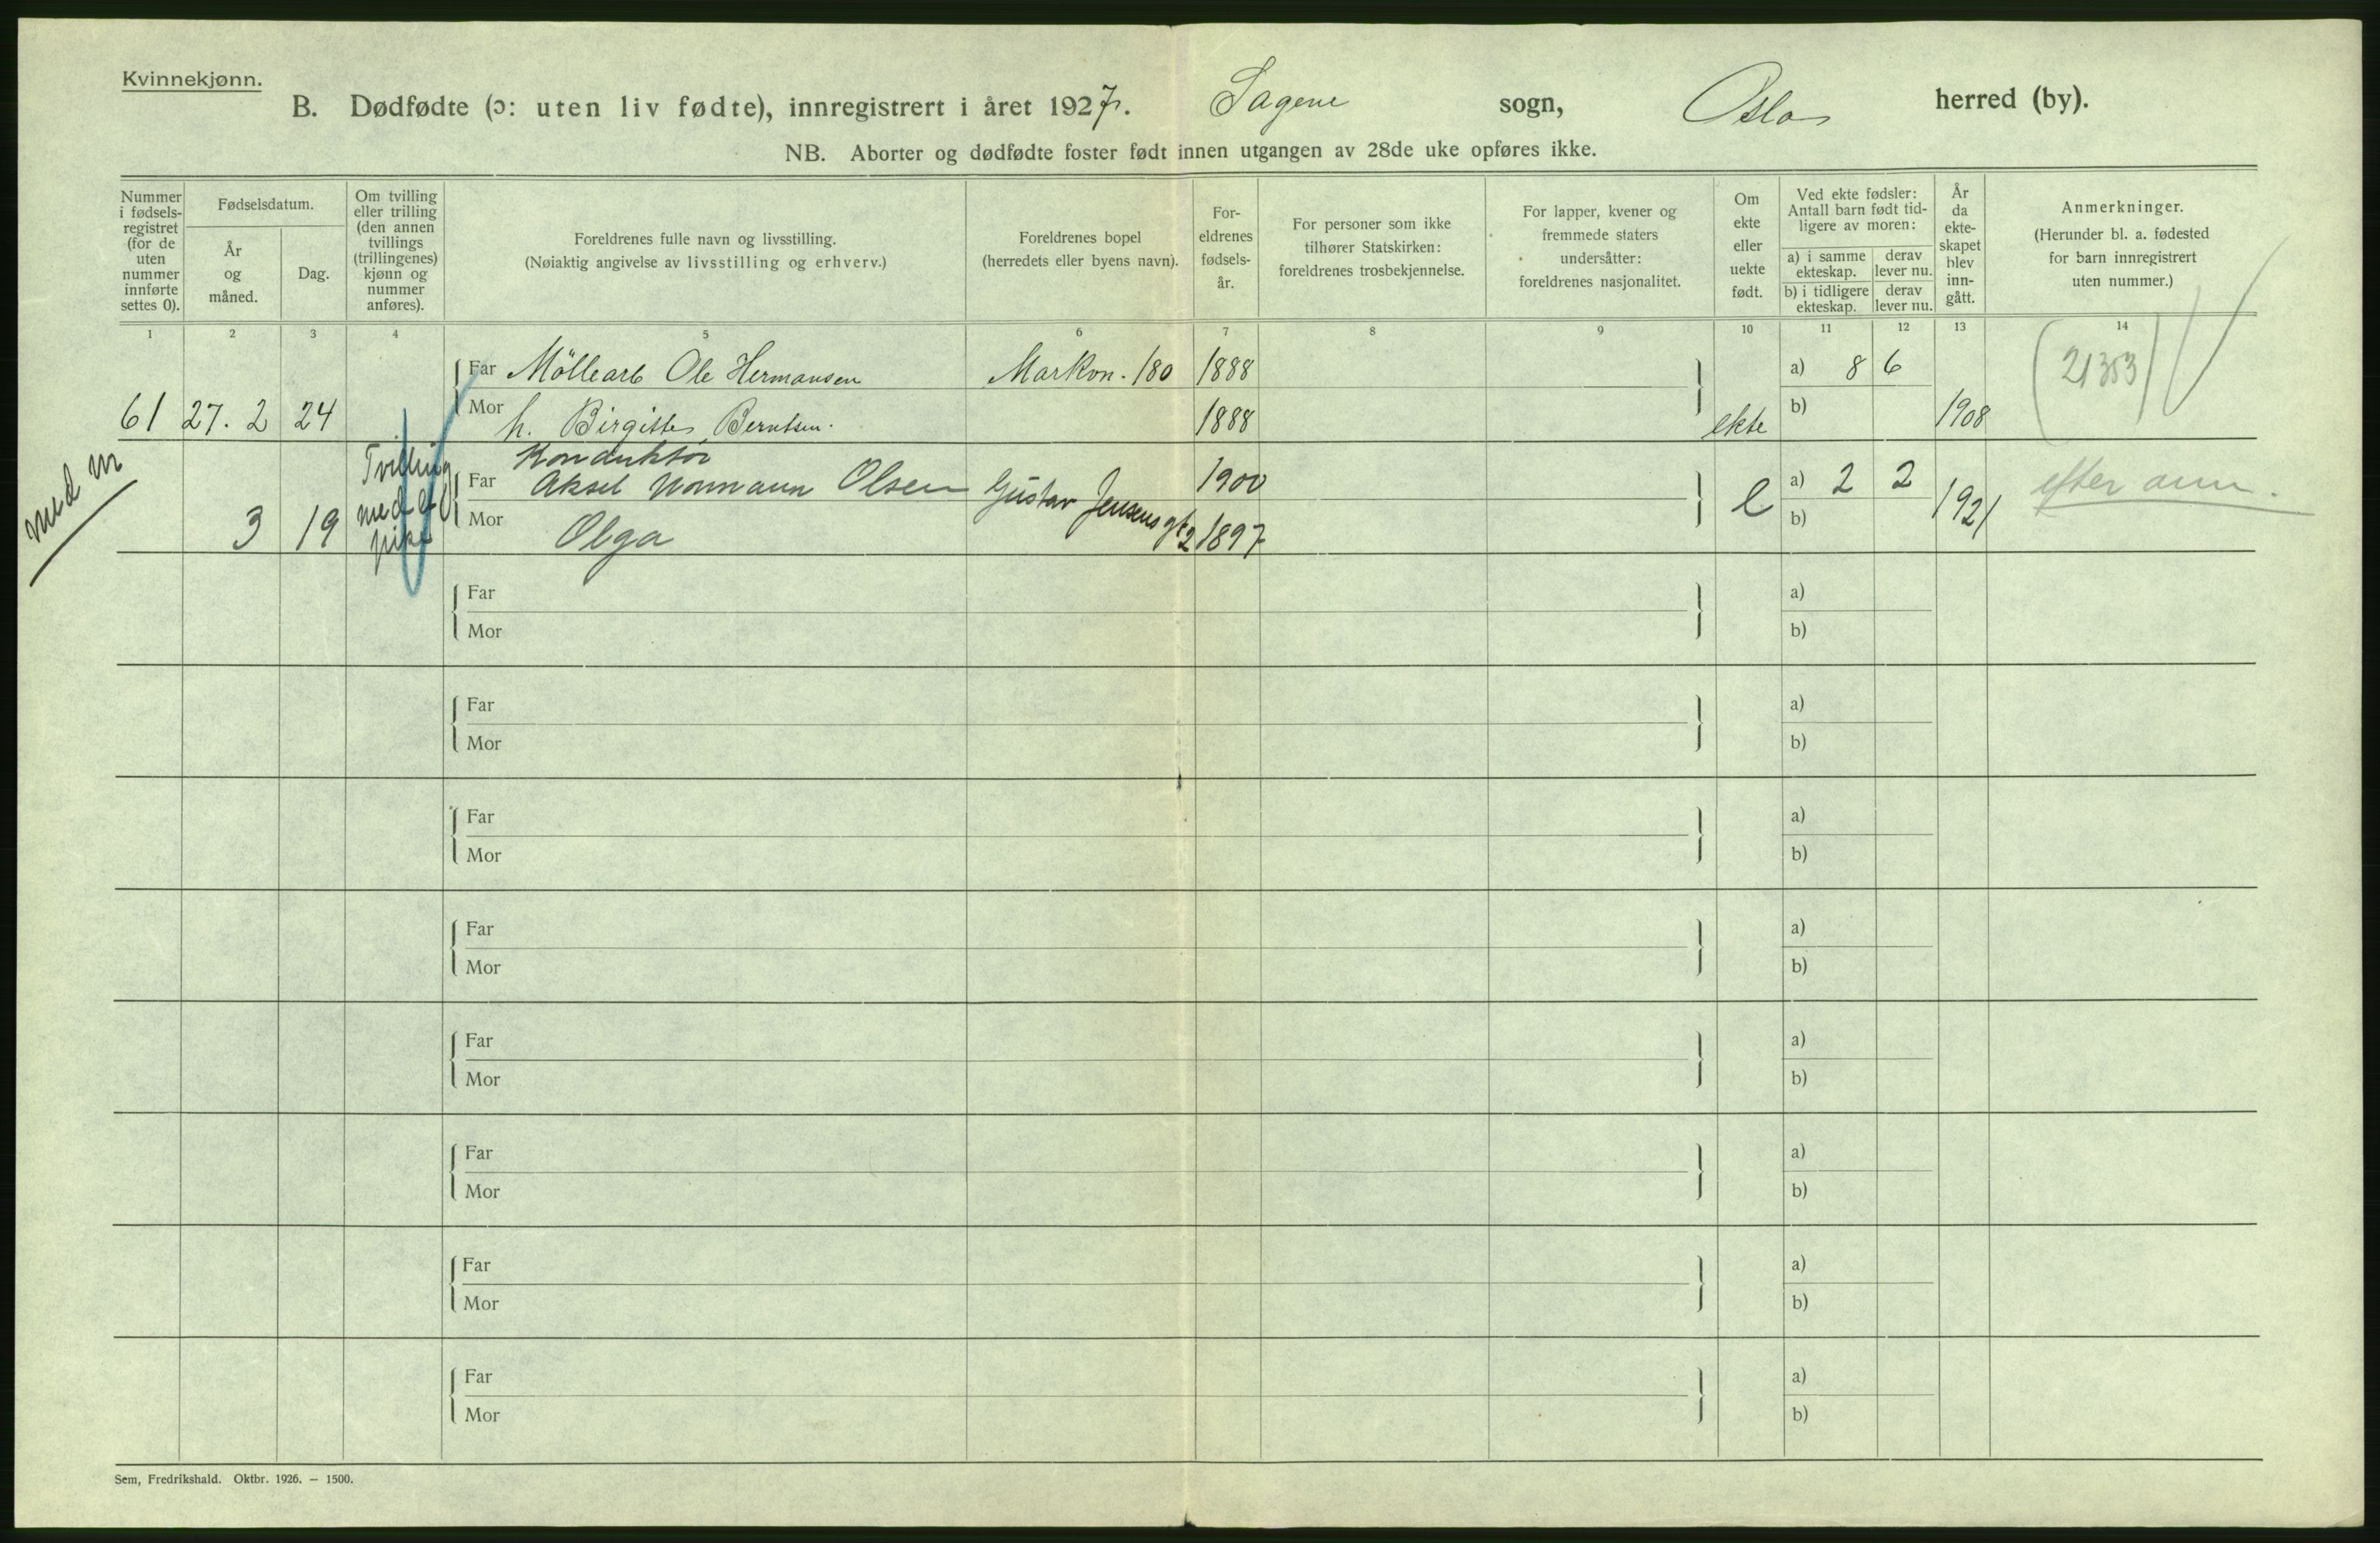 Kvinnekjønn.
B. Dødfødte (ɔ: uten liv fødte), innregistrert i året 1927. Sagene sogn, Oslo herred (by).
NB. Aborter og dødfødte foster født innen utgangen av 28de uke opføres ikke.
Nummer
i fødsels-
registret
(for de
uten
nummer
innførte
settes 0).
Fødselsdatum.
År
og
måned.
Dag.
Om tvilling
eller trilling
(den annen
tvillings
(trillingenes)
kjønn og
nummer
anføres).
Foreldrenes fulle navn og livsstilling.
(Nøiaktig angivelse av livsstilling og erhverv.)
Foreldrenes bopel
(herredets eller byens navn).
For-
eldrenes
fødsels-
år.
For personer som ikke
tilhører Statskirken:
foreldrenes trosbekjennelse.
For lapper, kvener og
fremmede staters
undersåtter:
foreldrenes nasjonalitet.
Om
ekte
eller
uekte
født.
Ved ekte fødsler:
Antall barn født tid-
ligere av moren:
a) i samme
ekteskap.
derav
lever nu.
b) i tidligere
ekteskap.
derav
lever nu.
År
da
ekte-
skapet
blev
inn-
gått.
Anmerkninger.
(Herunder bl. a. fødested
for barn innregistrert
uten nummer.)
1 2 3 4 5 6 7 8 9 10 11 12 13 14
Far Möllearb Ole Hermansen Markvn. 180 1888 a) 8 6 (21353)
61 27. 2 24 Mor h. Birgitte Berntsen. 1888 ekte b) 1908
med nr
Tvilling
med en
pike
Konduktör
Far Aksel Normann Olsen Gustav Jensens gt 2 1900 a) 2 2 efter anm.
3 19 Mor Olga 1897 e b) 1921
Far a)
Mor b)
Far a)
Mor b)
Far a)
Mor b)
Far a)
Mor b)
Far a)
Mor b)
Far a)
Mor b)
Far a)
Mor b)
Far a)
Mor b)
Sem, Fredrikshald. Oktbr. 1926. – 1500.